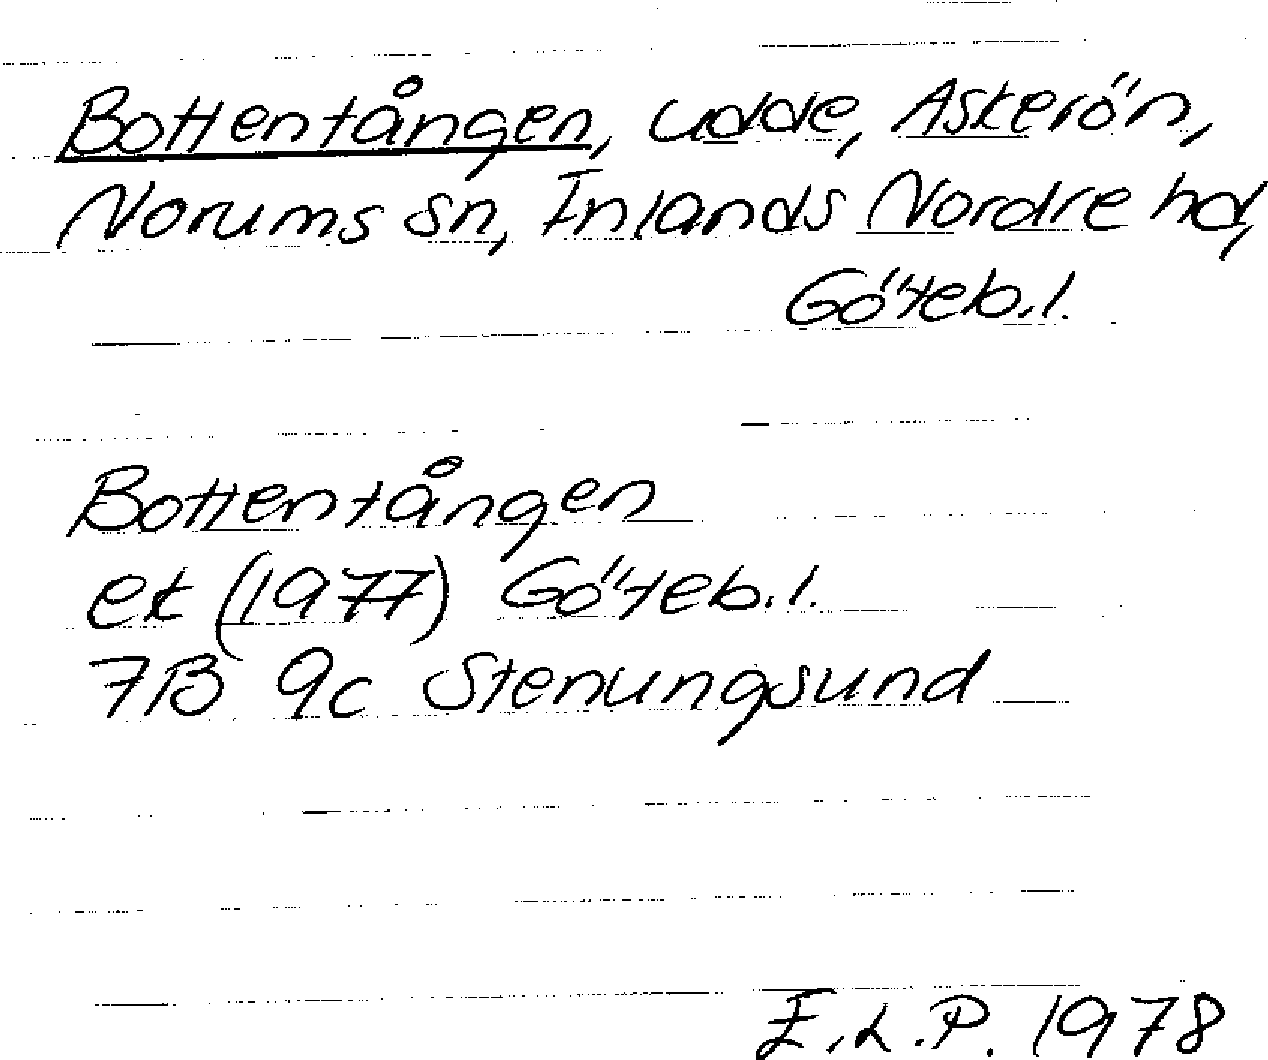 Bottentången, udde, Askerön,
Norums sn, Inlands Nordre hd,
Göteb.l.
Bottentången
ek (1977) Göteb.l.
7B 9c Stenungsund
E.L.P. 1978